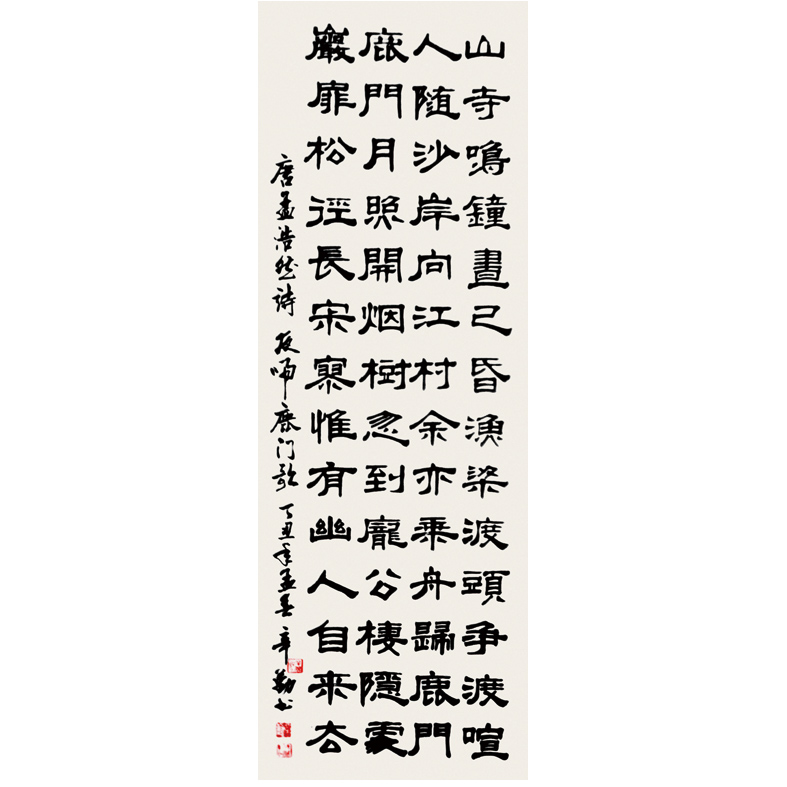 山寺鳴鐘晝已昏漁梁渡頭爭渡喧
人随沙岸向江村余亦乘舟歸鹿門
鹿門月照開烟樹忽到龐公棲隱處
巖扉松徑長寂寥惟有幽人自來去
唐孟浩然詩 夜歸鹿门歌 丁丑年孟春 辛勤书